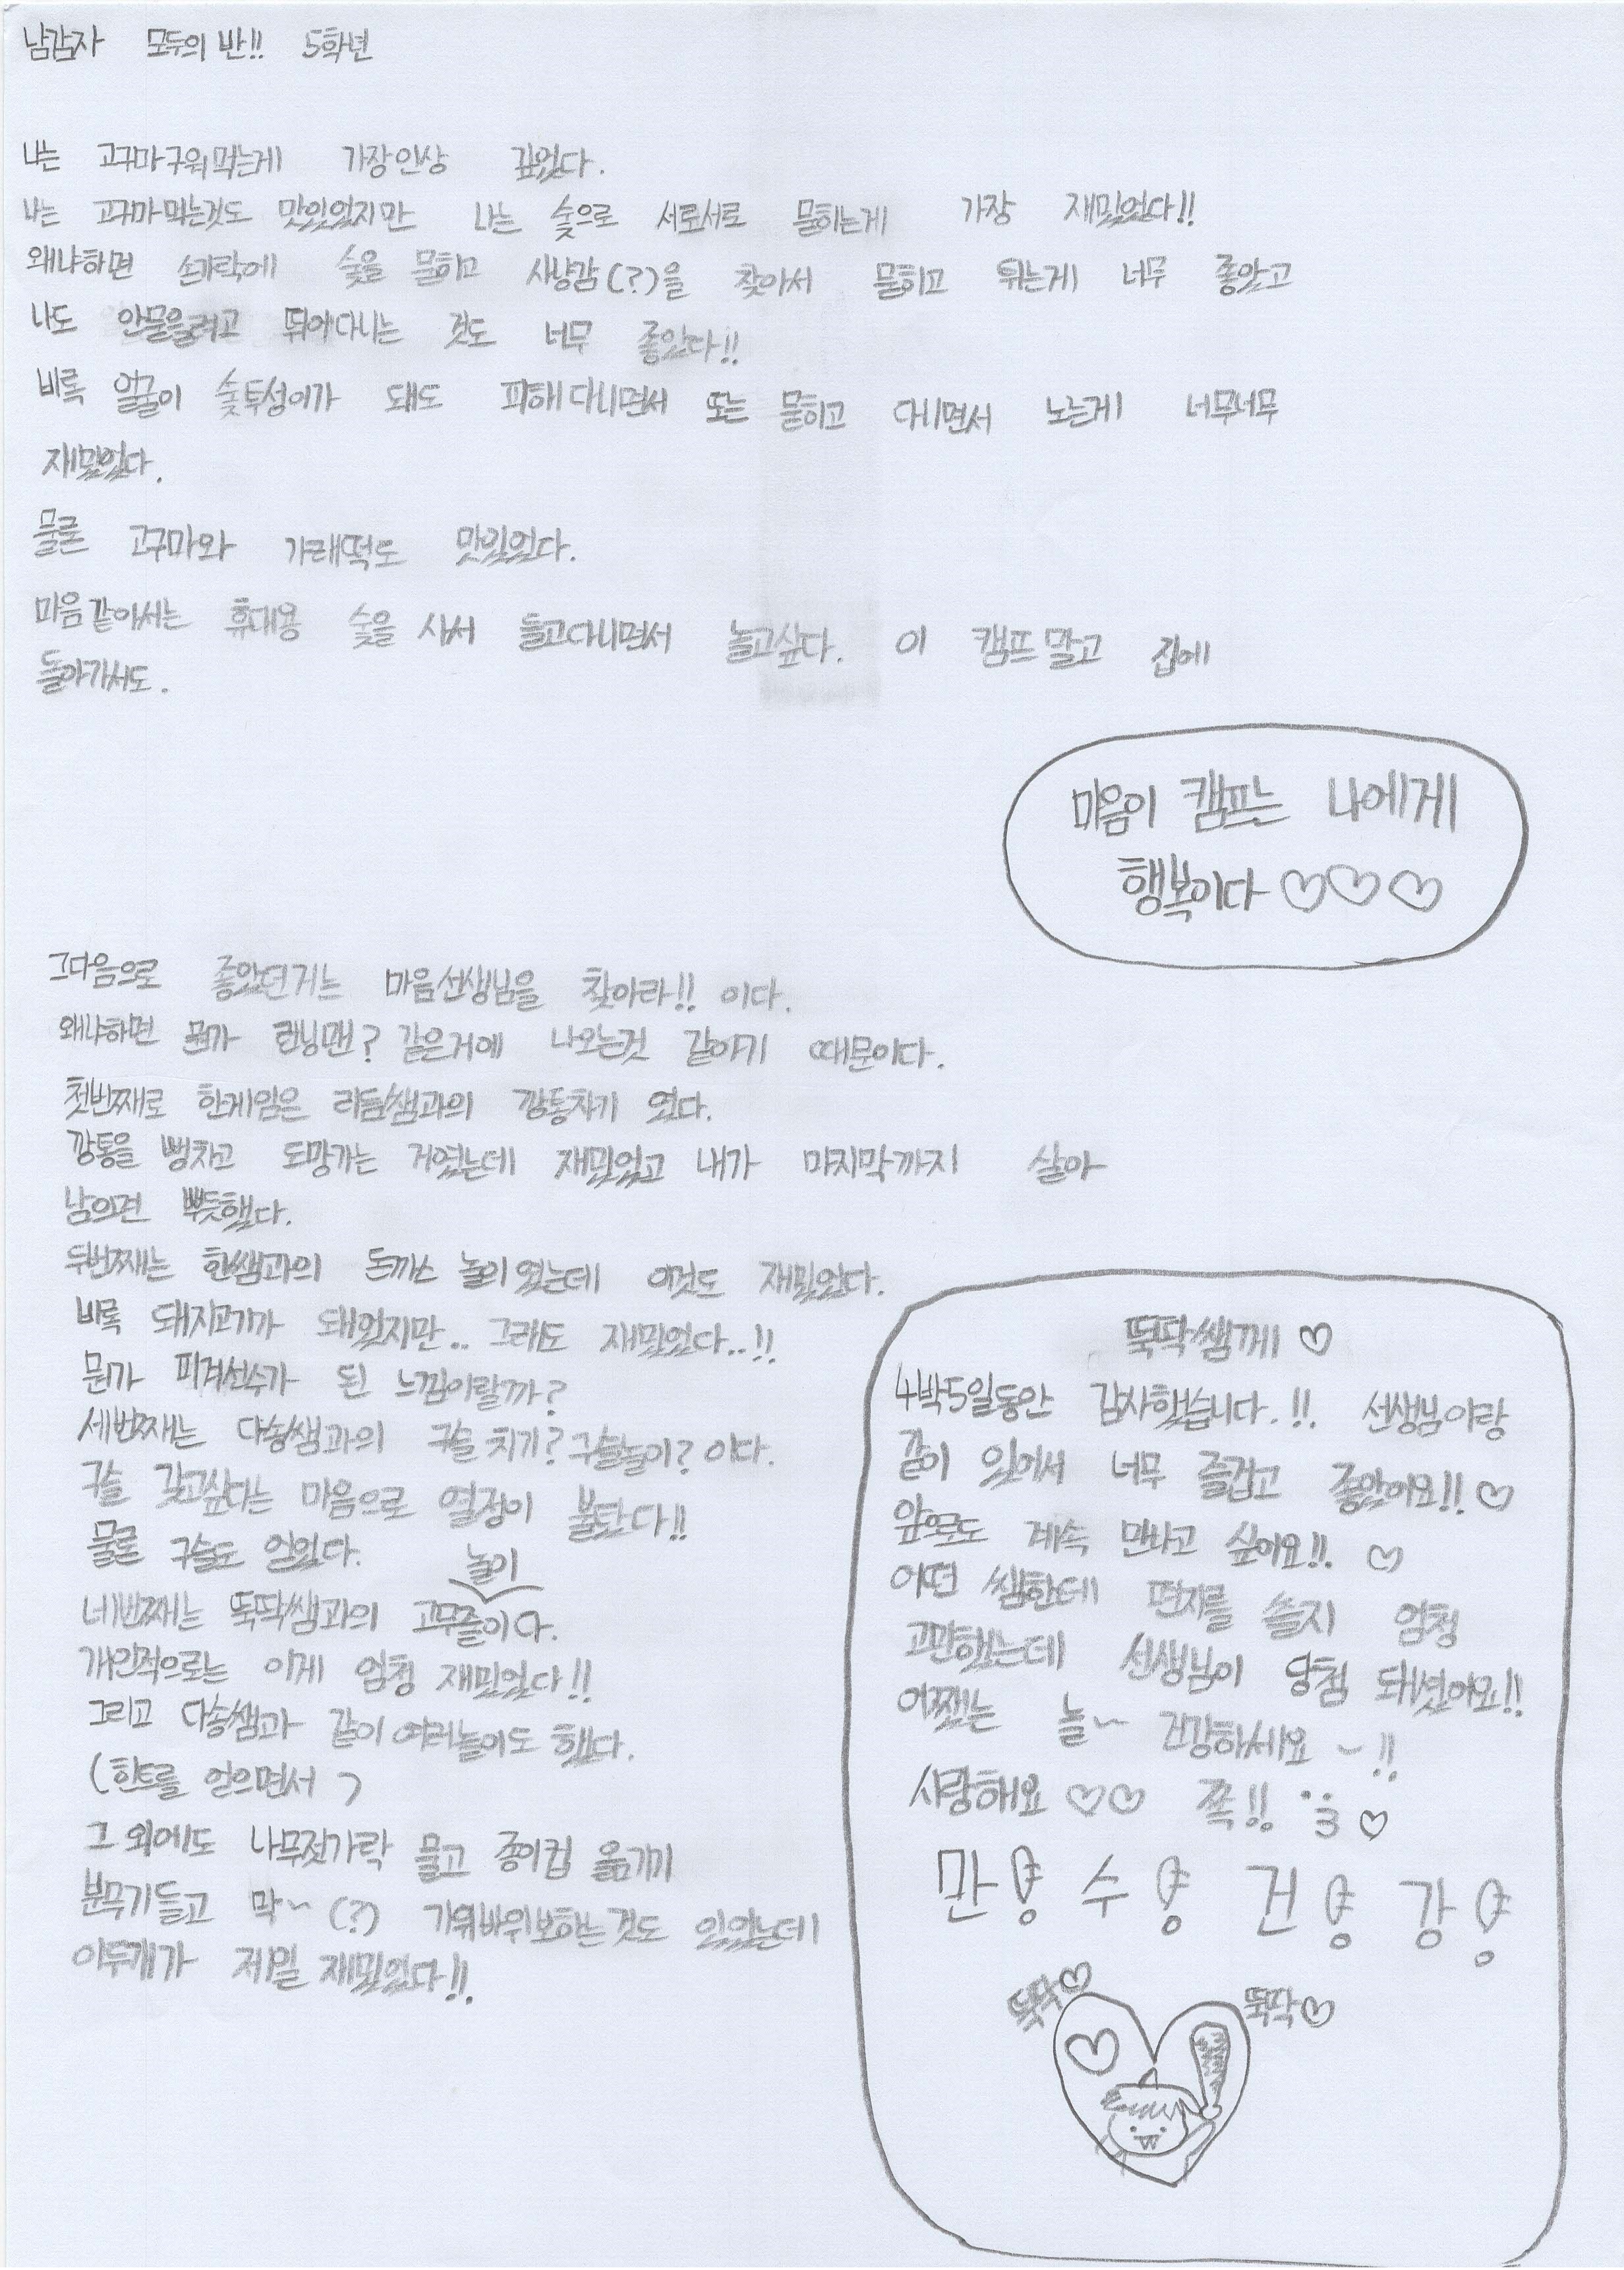 남감자 모두의 반!! 5학년
나는 고구마구워먹는게 가장인상 깊었다.
나는 고구마먹는것도 맛있있었지만 나는 숯으로 서로서로 묻히는게 가장 재밌었다!!
왜냐하면 손가락에 숯을 묻히고 사냥감(?)을 찾아서 묻히고 튀는게 너무 좋았고
나도 안물을려고 뛰어다니는 것도 너무 좋았다!!
비록 얼굴이 숯투성이가 돼도 피해다니면서 또는 묻히고 다니면서 노는게 너무너무
재밌었다.
물론 고구마와 가래떡도 맛있었다.
마음같아서는 휴대용 숯을 사서 들고다니면서 놀고싶다. 이 캠프말고 집에
돌아가서도.
마음이 캠프는 나에게
행복이다 ♡♡♡
그다음으로 좋았던거는 마음선생님을 찾아라!! 이다.
왜냐하면 뭔가 런닝맨? 같은거에 나오는것 같아기 때문이다.
첫번째로 한게임은 리듬쌤과의 깡통차기 였다.
깡통을 뻥차고 도망가는 거였는데 재밌었고 내가 마지막까지 살아
남의면 뿌듯했다.
두번째는 한쌤과의 돈까스 놀이였는데 이것도 재밌었다.
비록 돼지고기가 돼었지만.. 그래도 재밌었다..!!
뭔가 피겨선수가 된 느낌이랄까?
세번째는 다송쌤과의 구슬 치기? 구슬놀이? 이다.
구슬 갖고싶다는 마음으로 열정이 불탔다!!
물론 구슬도 얻었다.
놀이
네번째는 뚝딱쌤과의 고무줄이다.
개인적으로는 이게 엄청 재밌었다!!
그리고 다송쌤과 같이 여러놀이도 했다.
(힌트를 얻으면서)
그 외에도 나무젓가락 물고 종이컵 옮기기
분무기들고 막~ (?) 가위바위보하는것도 있었는데
이두개가 제일 재밌었다!!
뚝딱쌤께 ♡
4박5일동안 감사했습니다.!! 선생님이랑
같이 있어서 너무 즐겁고 좋았어요!! ♡
앞으로도 계속 만나고 싶어요!! ♡
어떤 쌤한테 편지를 쓸지 엄청
고민했는데 선생님이 당첨 돼셨어요!!
어쨌든 늘~ 건강하세요~!!
사랑해요 ♡♡ 쪽!! ♡
만 수 건 강
뚝딱♡ 뚝딱♡